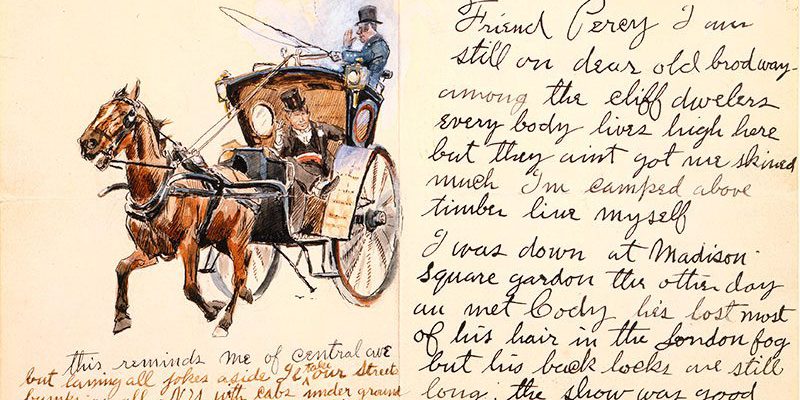 this reminds me of central ave
but all jokes aside Ile take our streets
an all with cabs under ground
Friend Percy I am
still on dear old brodway
among the cliff dwelers
every body lives high here
but they aint got me skined
much I'm camped above
timber line myself
I was down at Madison
Square gardon the other day
an met Cody he's lost most
of his hair in the London fog
but his back locks are still
long. the show was good